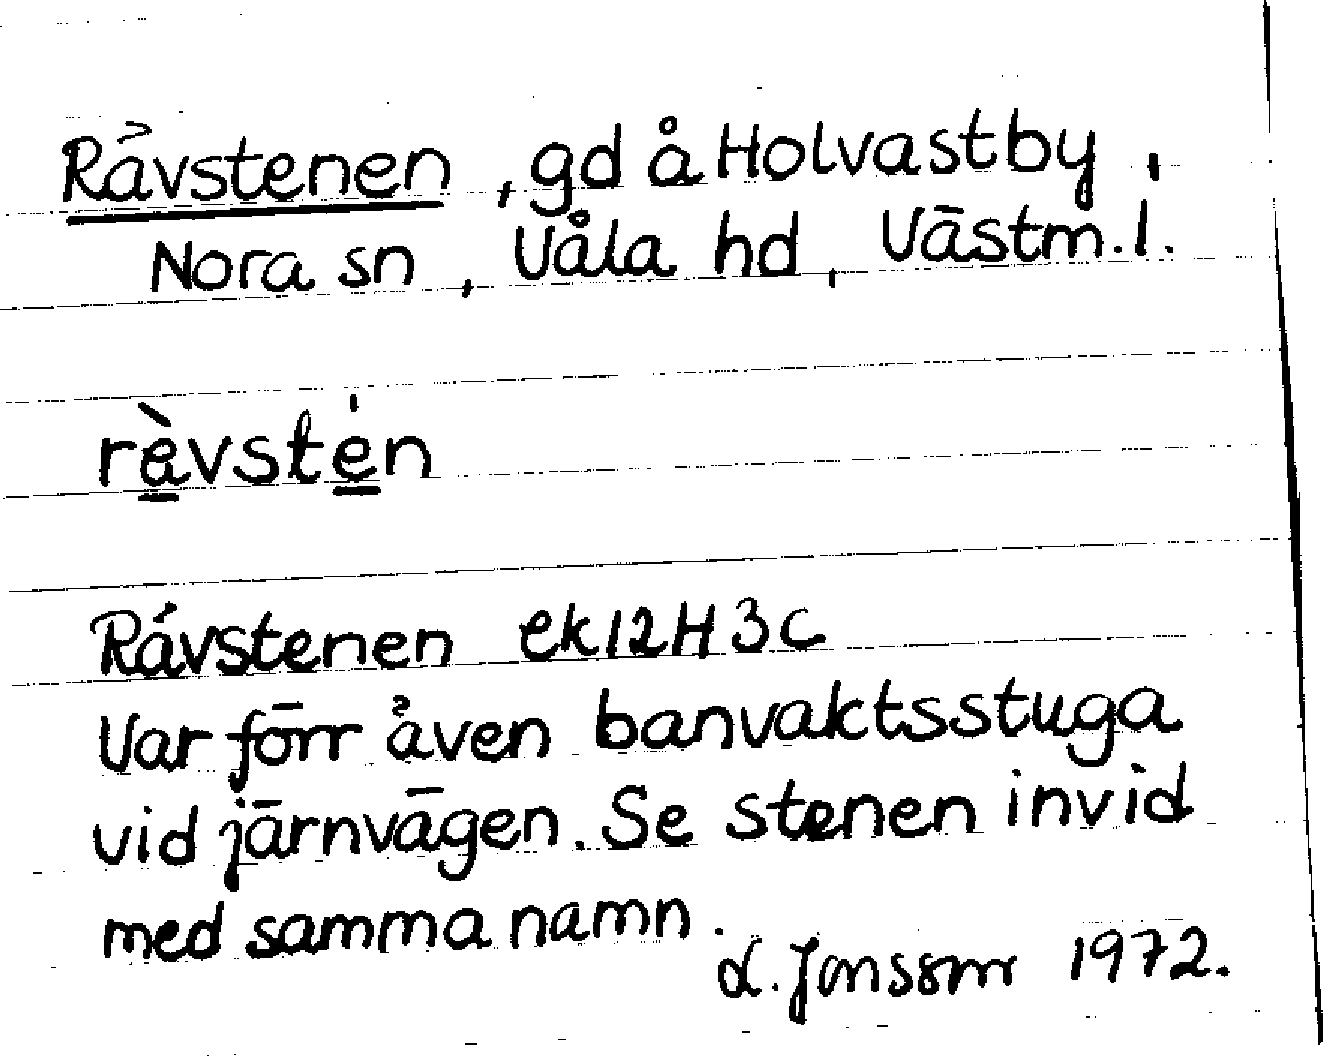 Rävstenen, gd å Holvastby,
Nora sn, Våla hd, Västm. l.
rèvstén
Rävstenen ek 12H3c
Var förr även banvaktsstuga
vid järnvägen. Se stenen invid
med samma namn.
L. Jonsson 1972.